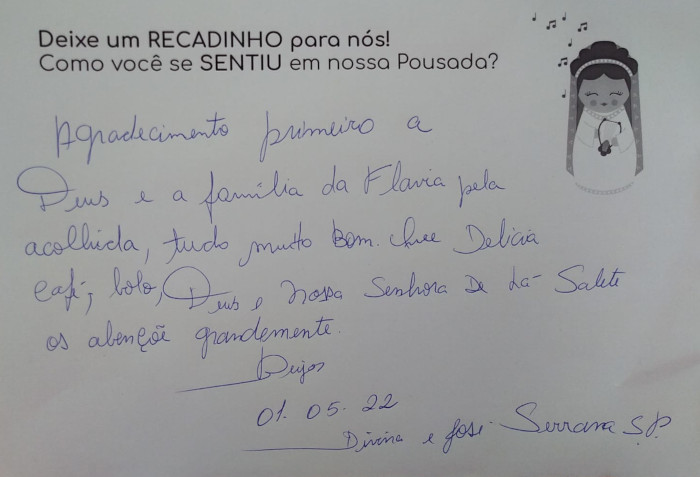 Deixe um RECADINHO para nós!
Como você se SENTIU em nossa Pousada?
Agradecimento primeiro a
Deus e a família da Flavia pela
acolhida, tudo muito Bom. Que Delicia
café, bolo, Deus e Nossa Senhora De La-Salete
os abençõe grandemente.
Beijos
01.05.22
Divina e José - Serrana S.P.